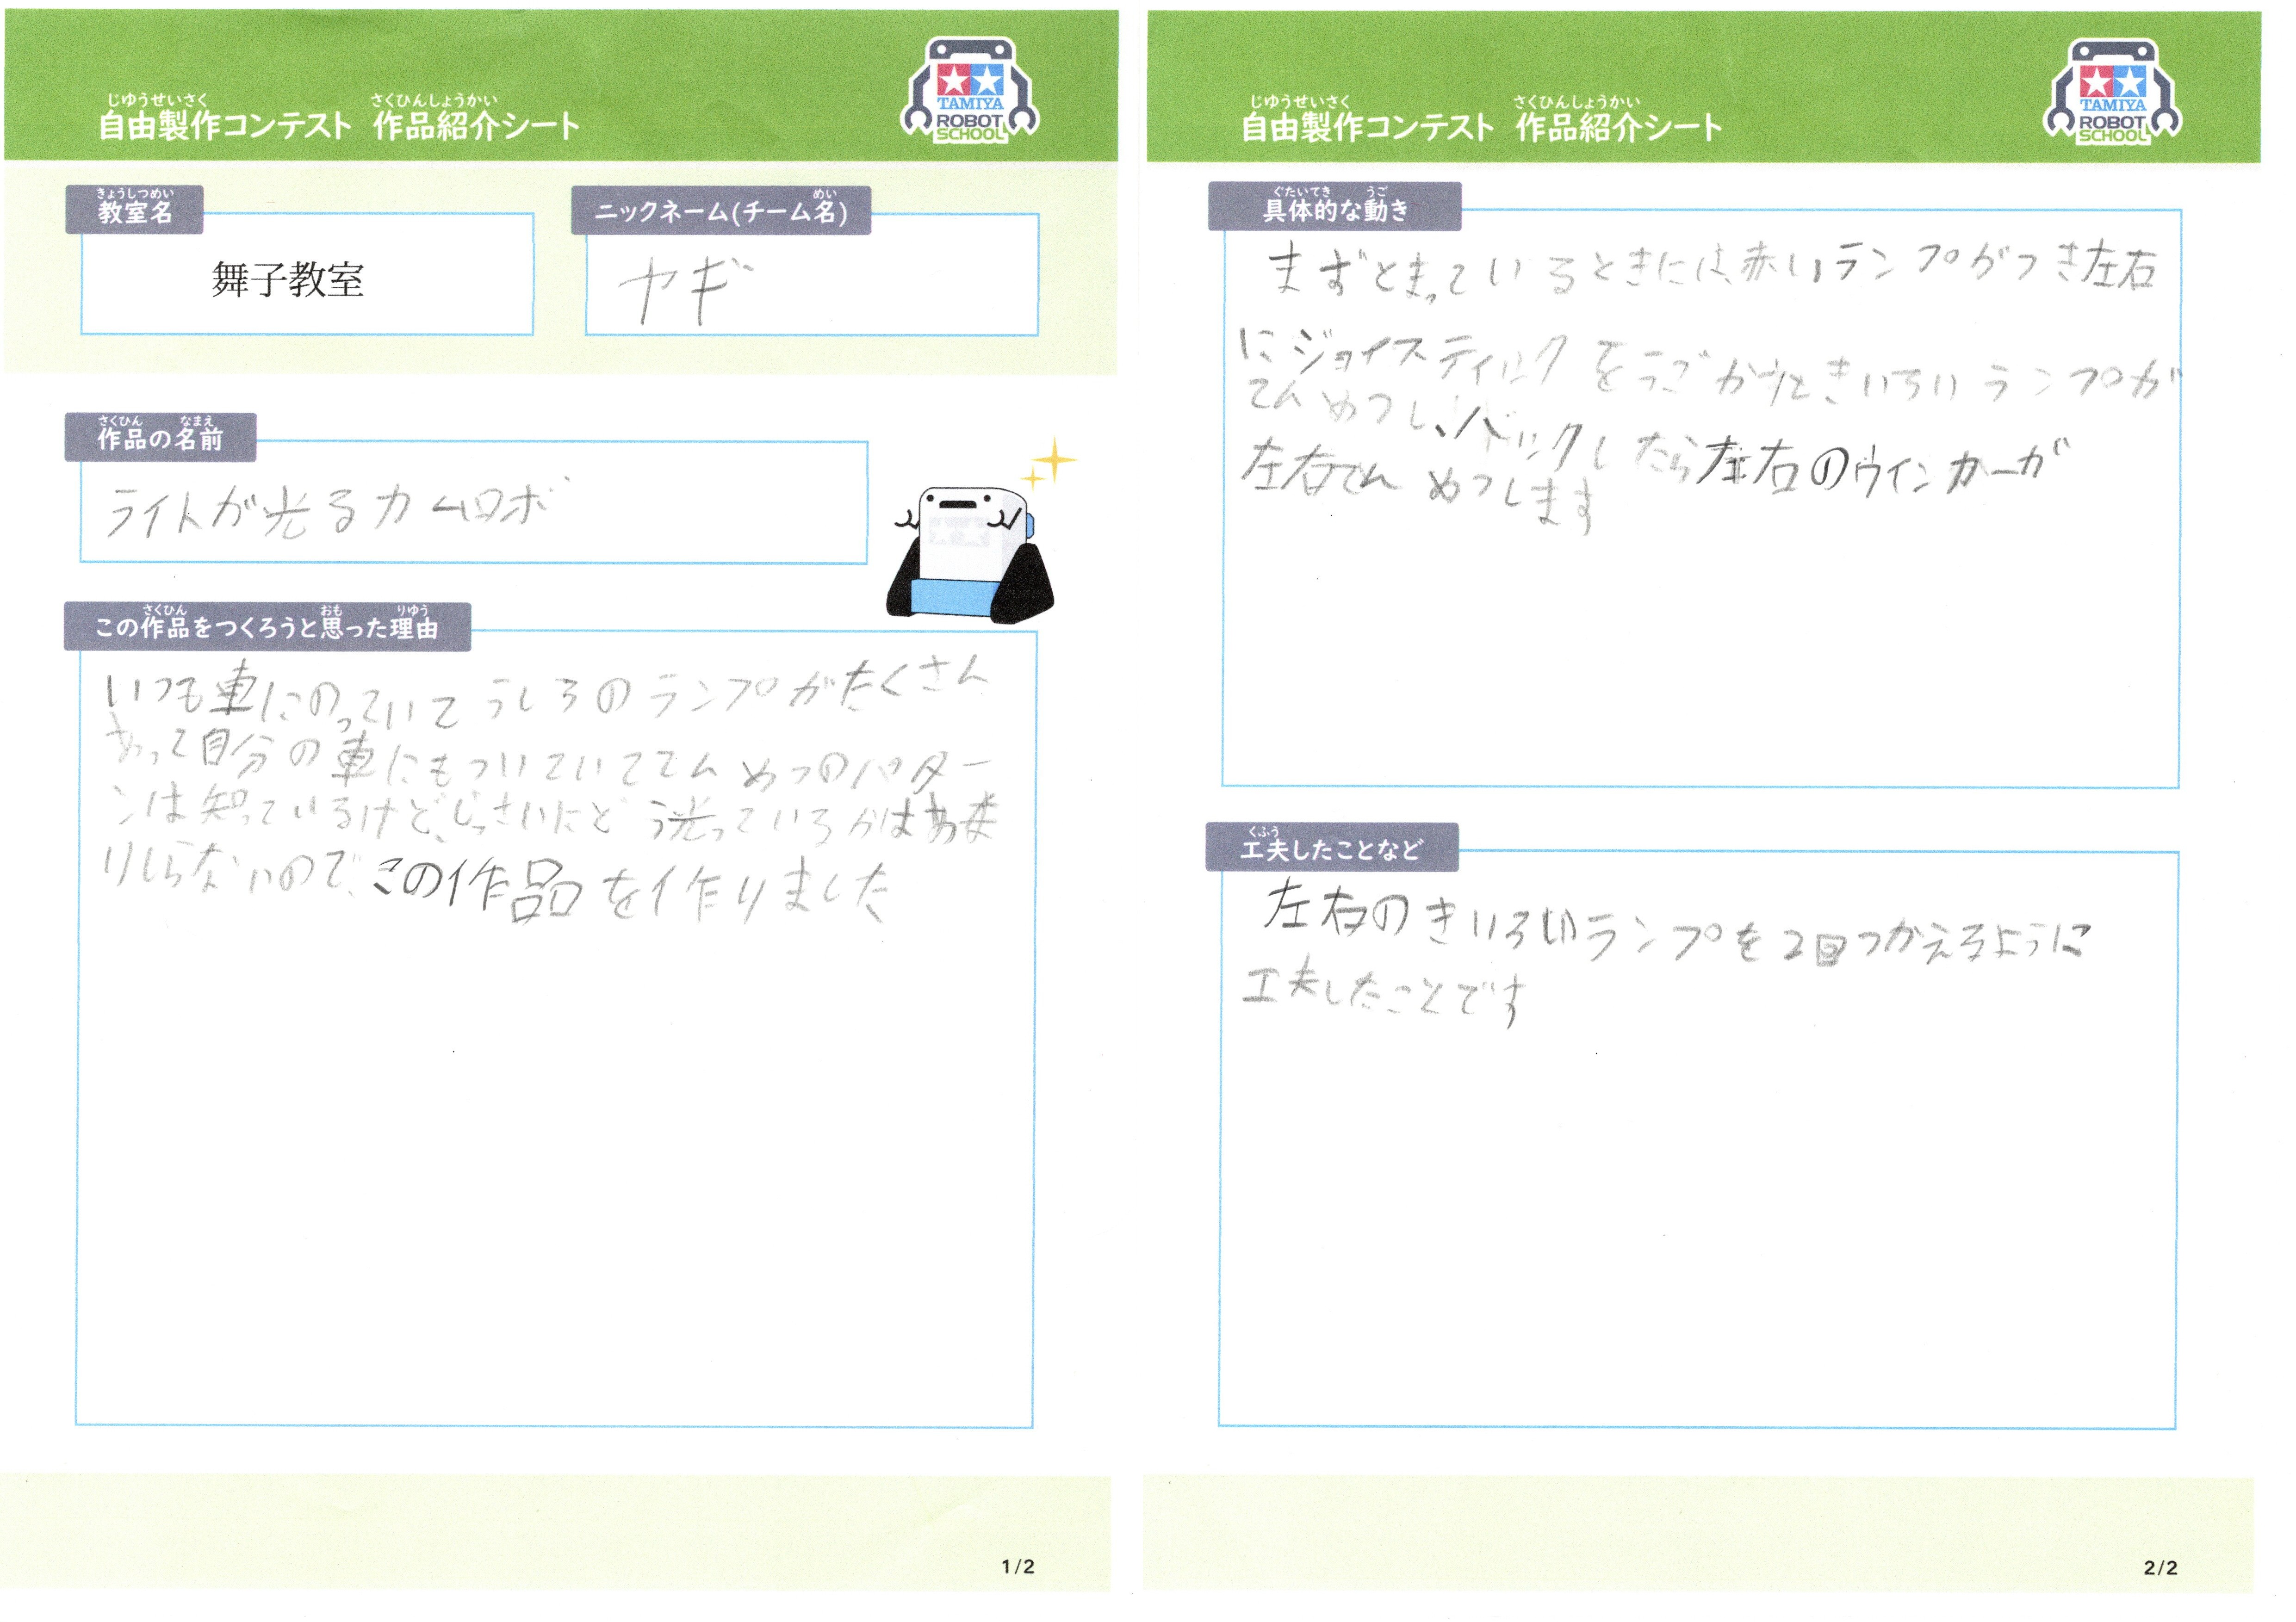 じゆうせいさく さくひんしょうかい
自由製作コンテスト 作品紹介シート
TAMIYA
ROBOT
SCHOOL
きょうしつめい
教室名
舞子教室
めい
ニックネーム(チーム名)
ヤギ
さくひん なまえ
作品の名前
ライトが光るカムロボ
さくひん おも りゆう
この作品をつくろうと思った理由
いつも車にのっていてうしろのランプがたくさん
あって自分の車にもついていててんめつのパター
ンは知っているけど、じっさいにどう光っているかはあま
りしらないので、この作品を作りました
1/2
じゆうせいさく さくひんしょうかい
自由製作コンテスト 作品紹介シート
TAMIYA
ROBOT
SCHOOL
ぐたいてき うご
具体的な動き
まずとまっているときには、赤いランプがつき左右
にジョイスティックをうごかすときいろいランプが
てんめつし、バックしたら左右のウインカーが
左右てんめつします
くふう
工夫したことなど
左右のきいろいランプを2回つかえるように
工夫したことです
2/2